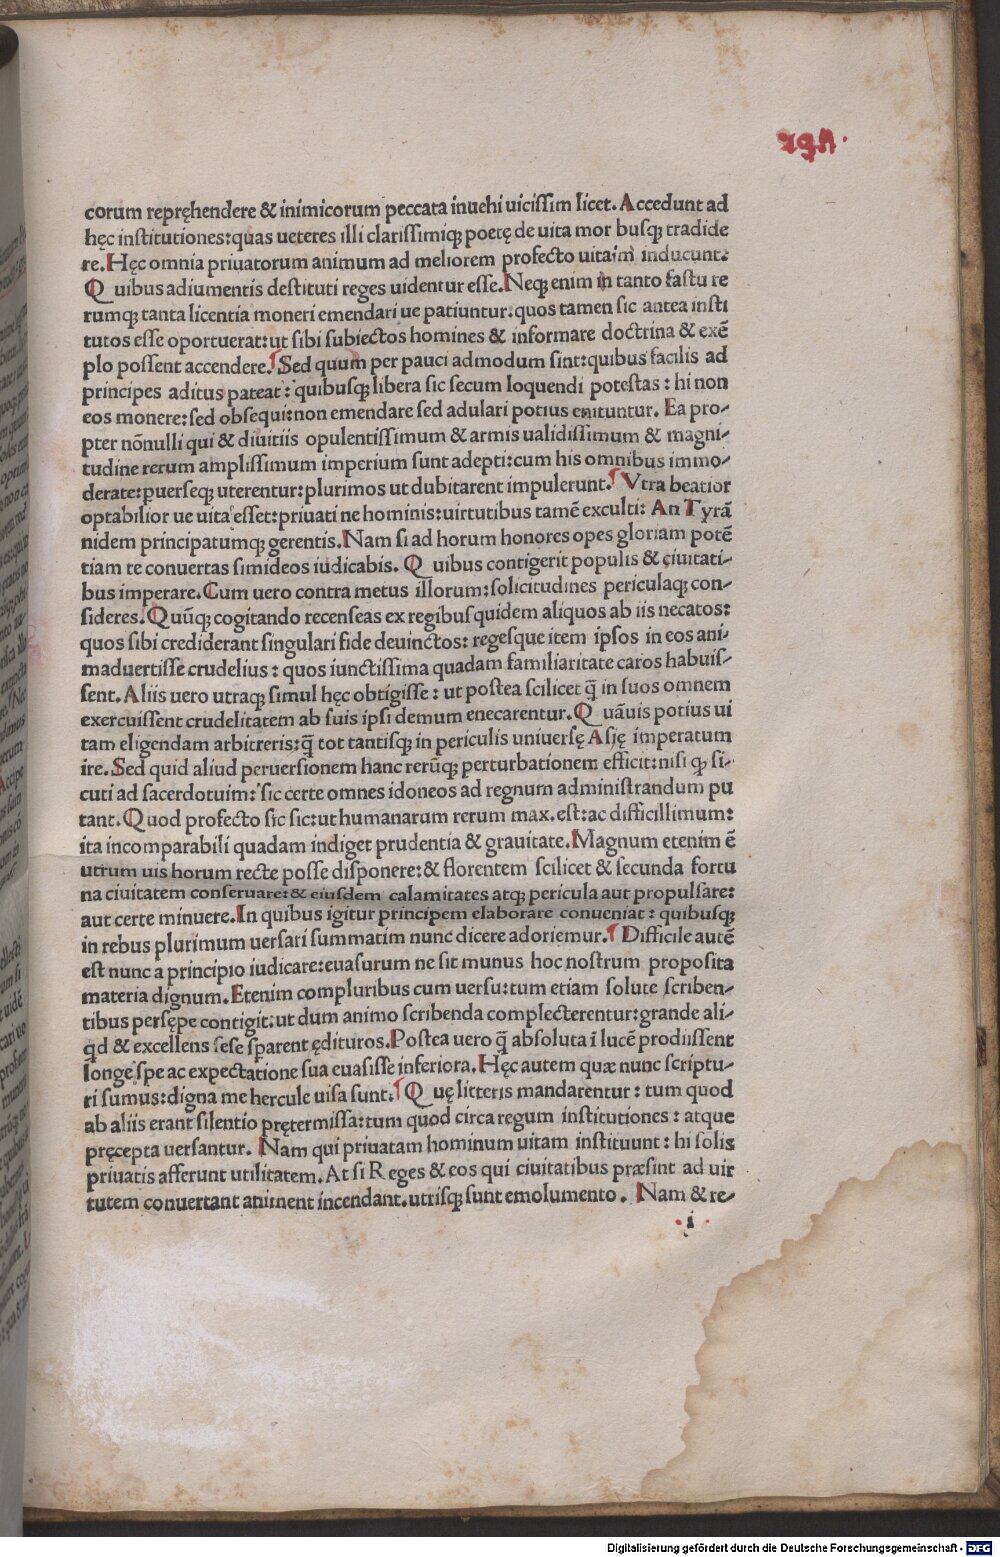 corum repręhendere & inimicorum peccata inuehi uicissim licet. Accedunt ad
hęc institutiones: quas ueteres illi clarissimiqꝫ poetę de uita mor busqꝫ tradide
re. Hęc omnia priuatorum animum ad meliorem profecto uitam inducunt:
Quibus adiumentis destituti reges uidentur esse. Neqꝫ enim in tanto fastu re
rumqꝫ tanta licentia moneri emendari ue patiuntur: quos tamen sic antea insti
tutos esse oportuerat: ut sibi subiectos homines & informare doctrina & exē
plo possent accendere. Sed quum per pauci admodum sint: quibus facilis ad
principes aditus pateat: quibusqꝫ libera sic secum loquendi potestas: hi non
eos monere: sed obsequi: non emendare sed adulari potius enituntur. Ea pro-
pter nōnulli qui & diuitiis opulentissimum & armis ualidissimum & magni-
tudine rerum amplissimum imperium sunt adepti: cum his omnibus immo-
derate: puerseqꝫ uterentur: plurimos ut dubitarent impulerunt. Vtra beatior
optabilior ue uita esset: priuati ne hominis: uirtutibus tamē exculti: An Tyrā
nidem principatumqꝫ gerentis. Nam si ad horum honores opes gloriam potē
tiam te conuertas simideos iudicabis. Quibus contigerit populis & ciuitati-
bus imperare. Cum uero contra metus illorum: solicitudines periculaqꝫ con-
sideres. Quūqꝫ cogitando recenseas ex regibus quidem aliquos ab iis necatos:
quos sibi crediderant singulari fide deuinctos: regesque item ipsos in eos ani-
maduertisse crudelius: quos iunctissima quadam familiaritate caros habuis-
sent. Aliis uero utraqꝫ simul hęc obtigisse: ut postea scilicet q̄ in suos omnem
exercuissent crudelitatem ab suis ipsi demum enecarentur. Quāuis potius ui
tam eligendam arbitreris: q̄ tot tantisqꝫ in periculis uniuersę Asię imperatum
ire. Sed quid aliud peruersionem hanc rerūqꝫ perturbationem efficit: nisi ꝙ si-
cuti ad sacerdotuim: sic certe omnes idoneos ad regnum administrandum pu
tant. Quod profecto sic sit: ut humanarum rerum max. est: ac difficillimum:
ita incomparabili quadam indiget prudentia & grauitate. Magnum etenim ē
utrum uis horum recte posse disponere: & florentem scilicet & secunda fortu
na ciuitatem conseruare: & eiusdem calamitates atqꝫ pericula aut propulsare:
aut certe minuere. In quibus igitur principem elaborare conueniat: quibusqꝫ
in rebus plurimum uersari summatim nunc dicere adoriemur. Difficile autē
est nunc a principio iudicare: euasurum ne sit munus hoc nostrum proposita
materia dignum. Etenim compluribus cum uersu: tum etiam solute scriben-
tibus persępe contigit: ut dum animo scribenda complecterentur: grande ali-
qd & excellens sese sparent ędituros. Postea uero q̄ absoluta ī lucē prodiissent
longe spe ac expectatione sua euasisse inferiora. Hęc autem quæ nunc scriptu-
ri sumus: digna me hercule uisa sunt. Quę litteris mandarentur: tum quod
ab aliis erant silentio prętermissa: tum quod circa regum institutiones: atque
pręcepta uersantur. Nam qui priuatam hominum uitam instituunt: hi solis
priuatis afferunt utilitatem. At si Reges & eos qui ciuitatibus præsint ad uir
tutem conuertant animent incendant. utrisqꝫ sunt emolumento. Nam & re-
i
Digitalisierung gefördert durch die Deutsche Forschungsgemeinschaft - DFG